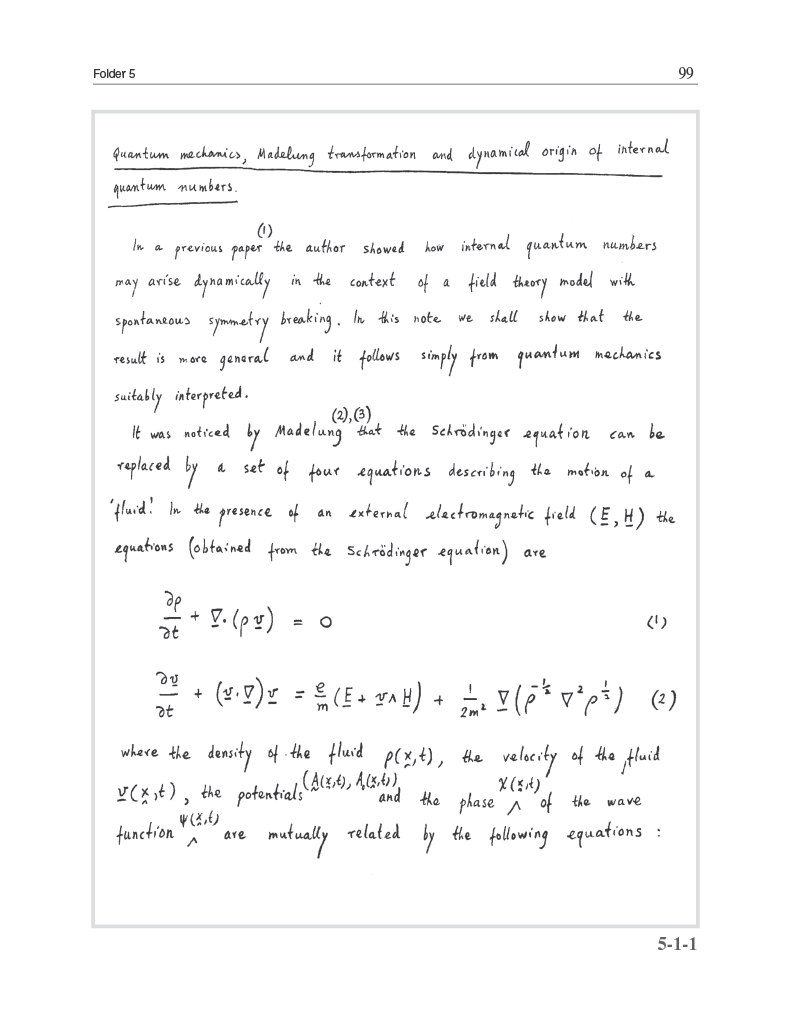 Folder 5
99
Quantum mechanics, Madelung transformation and dynamical origin of internal
quantum numbers.
In a previous paper (1) the author showed how internal quantum numbers
may arise dynamically in the context of a field theory model with
spontaneous symmetry breaking. In this note we shall show that the
result is more general and it follows simply from quantum mechanics
suitably interpreted.
It was noticed by Madelung (2),(3) that the Schrödinger equation can be
replaced by a set of four equations describing the motion of a
'fluid'. In the presence of an external electromagnetic field (E, H) the
equations (obtained from the Schrödinger equation) are
∂ρ/∂t + ∇·(ρv) = 0 (1)
∂v/∂t + (v·∇)v = e/m (E + v∧H) + 1/2m² ∇(ρ^-½ ∇²ρ^½) (2)
where the density of the fluid ρ(x,t), the velocity of the fluid
v(x,t), the potentials (A(x,t), A₀(x,t)) and the phase χ(x,t) of the wave
function ψ(x,t) are mutually related by the following equations :
5-1-1